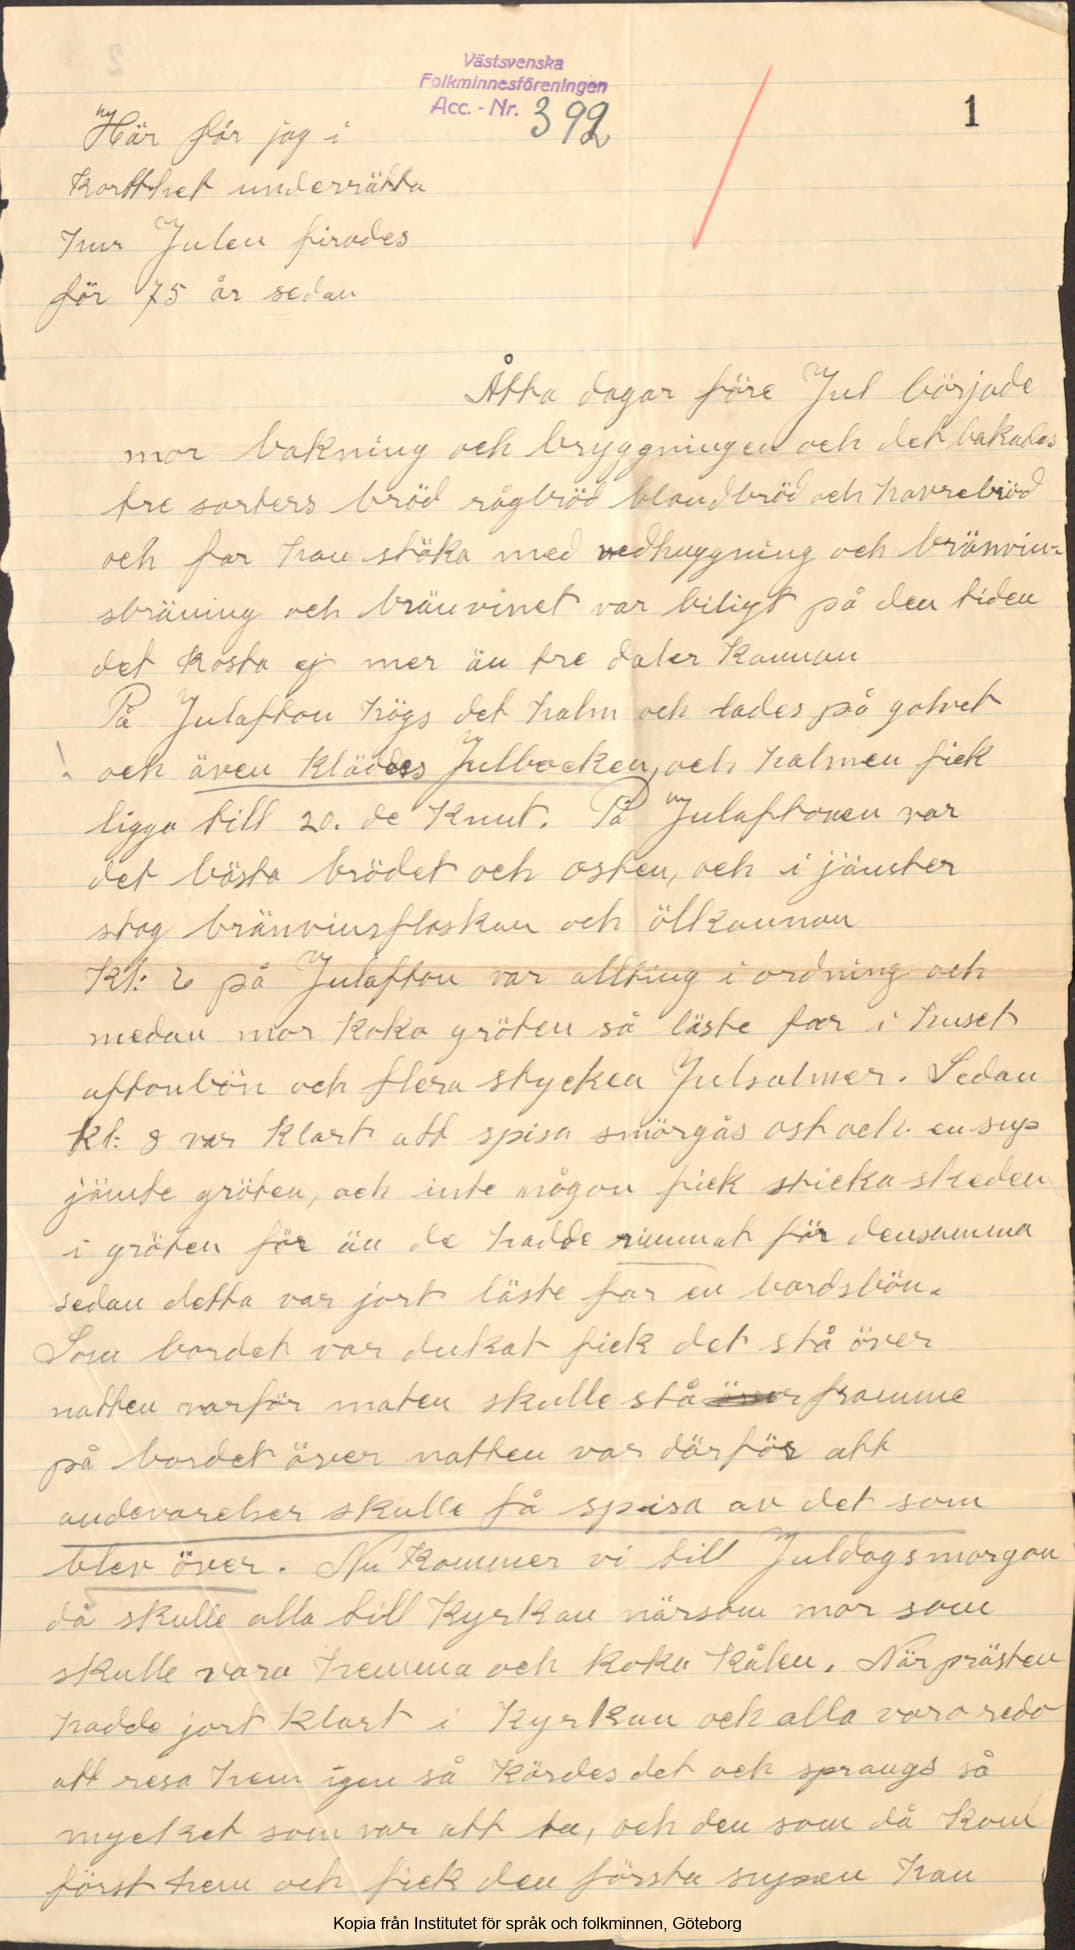 Västsvenska
Folkminnesföreningen
Acc. - Nr. 392
1
Här får jag i
kortthet underrätta
hur Julen firades
för 75 år sedan
Åtta dagar före Jul började
mor bakning och bryggningen och det bakades
tre sorters bröd rågbröd blandbröd och havrebröd
och far han stöka med vedhuggning och bränvin-
sbräning och bränvinet var biligt på den tiden
det kosta ej mer än tre daler kannan
På Julafton högs det halm och lades på golvet
och även kläddes Julbocken, och halmen fick
ligga till 20. de Knut. På Julaftonen var
det bästa brödet och osten, och i jämter
stog bränvinsflaskan och ölkannan
Kl: 6 på Julafton var allting i ordning och
medan mor koka gröten så läste far i huset
aftonbön och flera stycken Julsalmer. Sedan
kl: 8 var klart att spisa smörgås ost och en sup
jämte gröten, och inte någon fick sticka skeden
i gröten för än de hadde rimmat för densamma
sedan detta var jort läste far en bordsbön.
Som bordet var dukat fick det stå över
natten varför maten skulle stå framme
på bordet över natten var därför att
andevarelser skulle få spisa av det som
blev över. Nu kommer vi till Juldagsmorgon
då skulle alla till Kyrkan närsom mor som
skulle vara hemma och koka kålen. När prästen
hadde jort klart i Kyrkan och alla vara redo
att resa hem igen så kördes det och sprangs så
mycket som var att ta, och den som då kom
först hem och fick den första supen han
Kopia från Institutet för språk och folkminnen, Göteborg